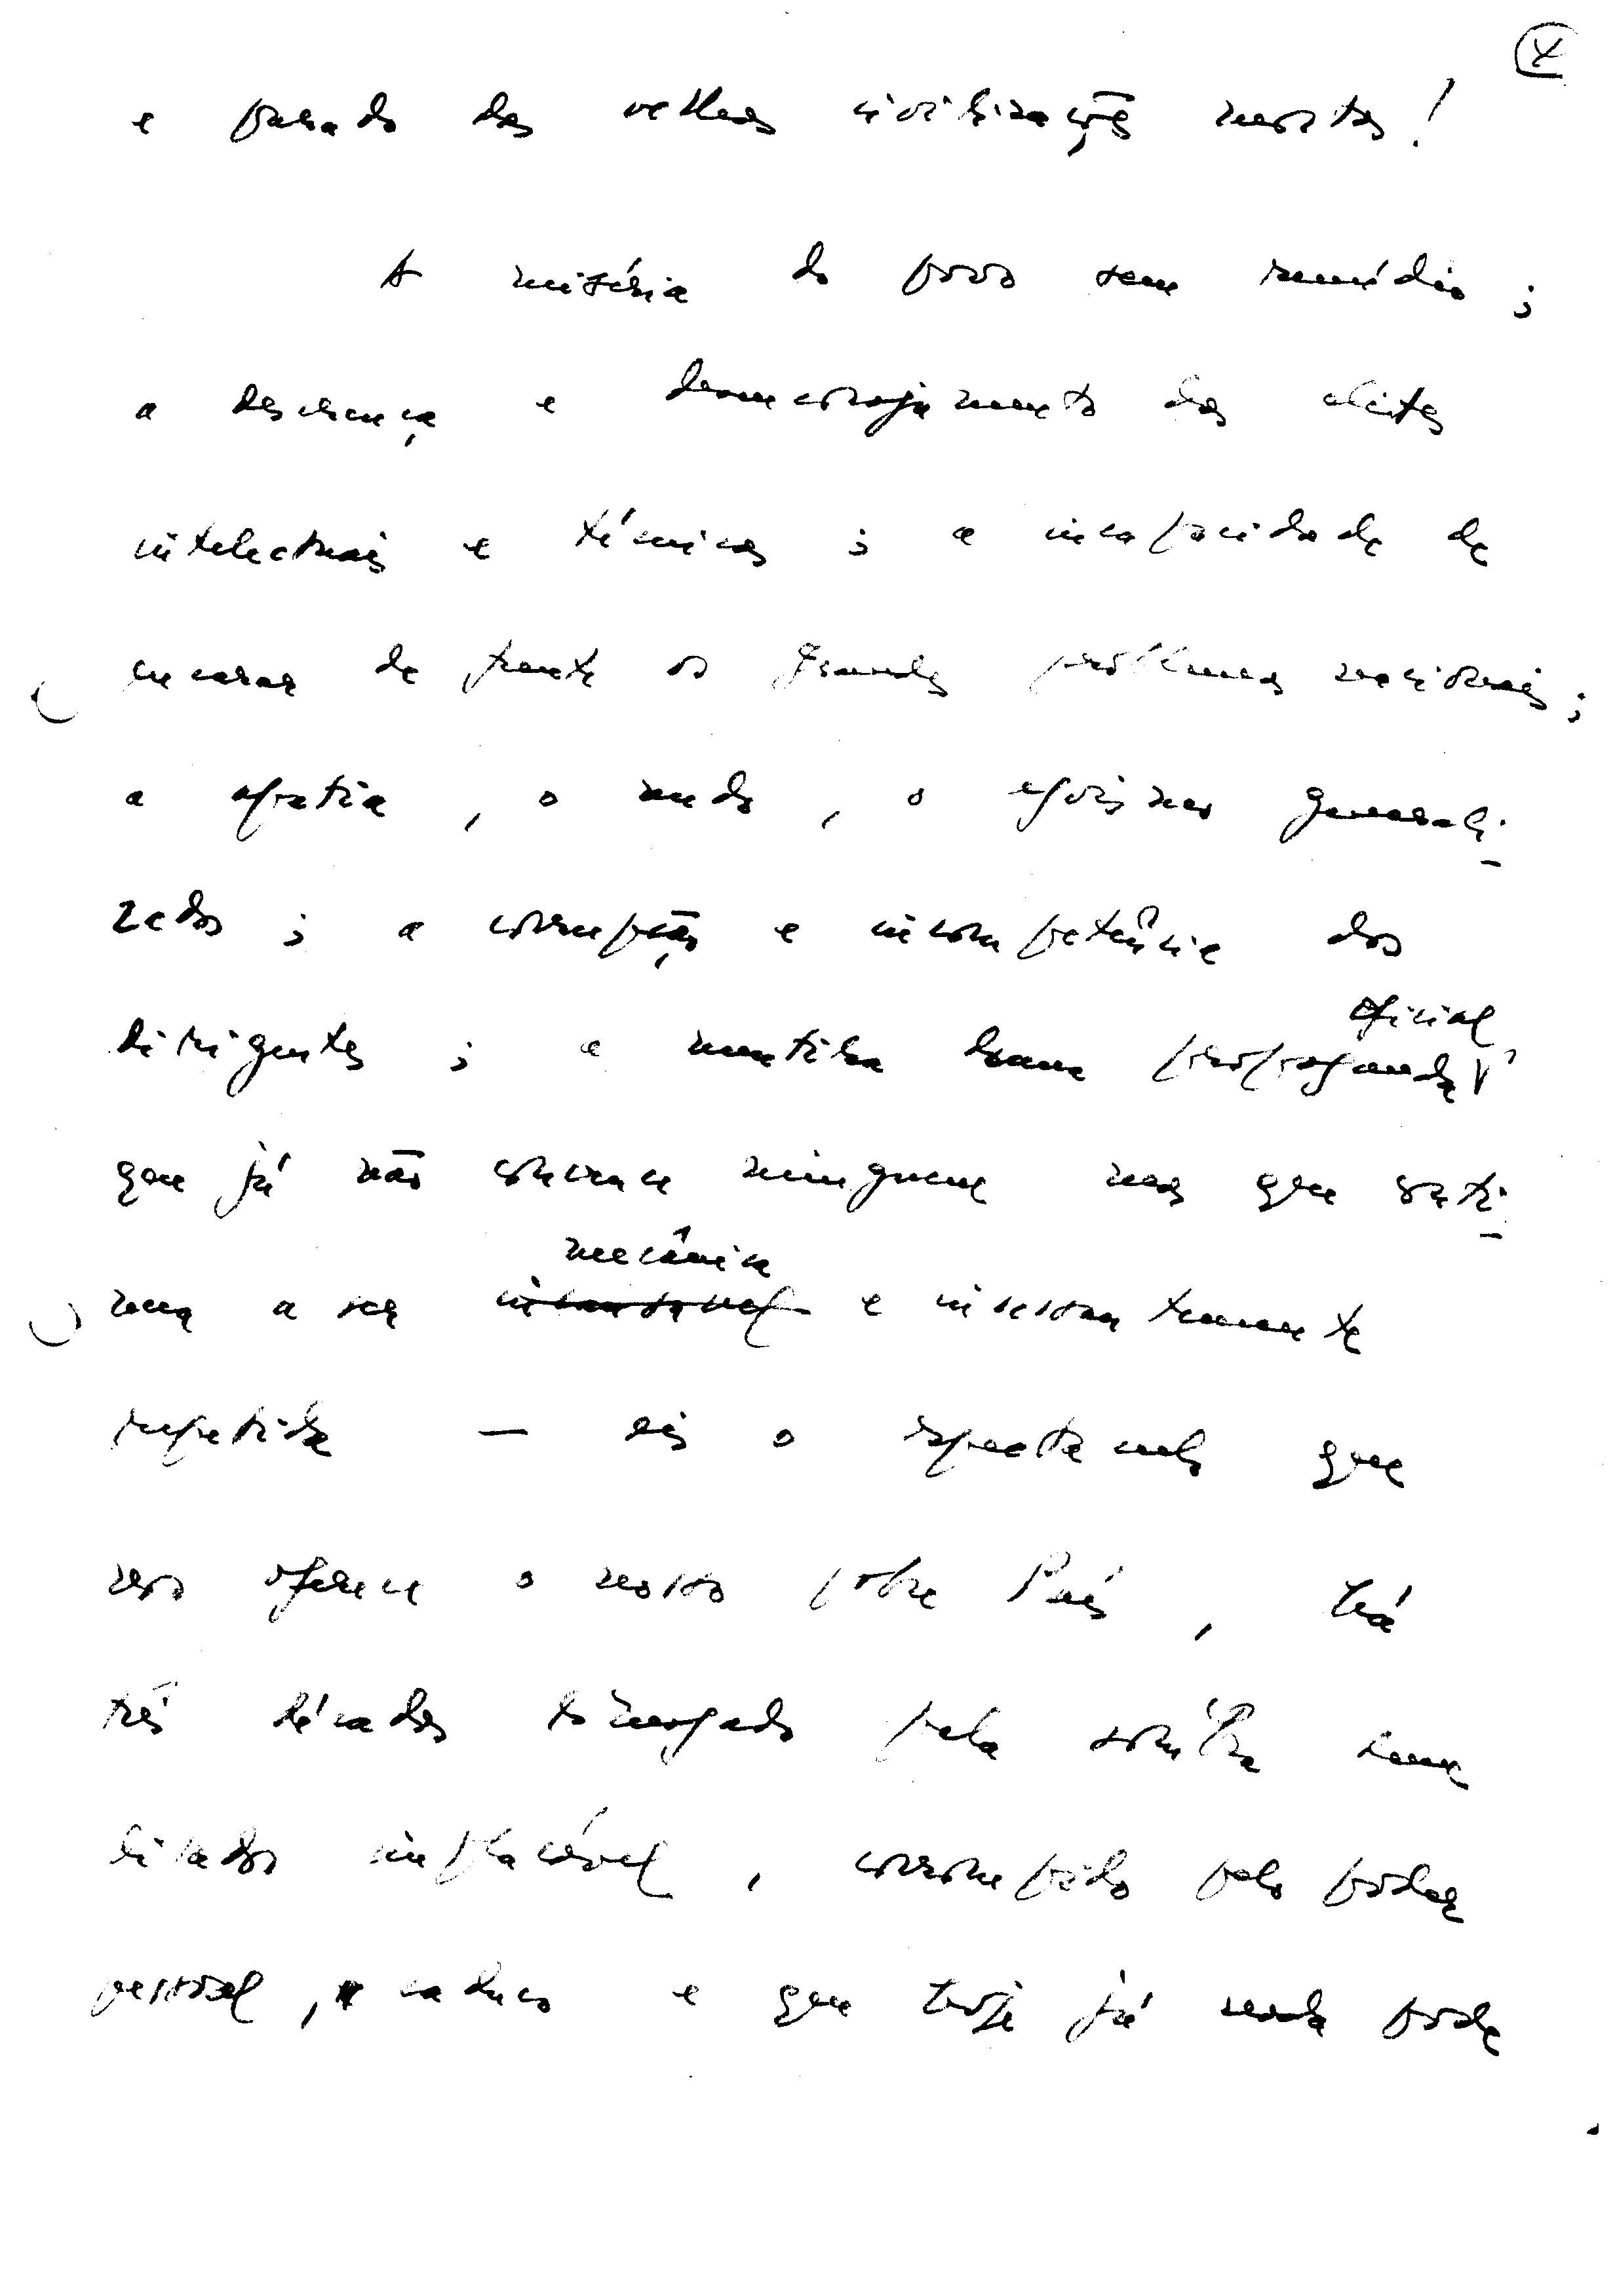 X
e parado das velhas civilizações mortas!
A miséria do povo sem remédio;
a descrença e desencorajamento das elites
intelectuais e técnicas; a incapacidade de
encarar de frente os grandes problemas nacionais;
a apatia, o medo, o egoismo generali-
zados; a corrupção e incompetência dos
dirigentes; a mentira duma propaganda oficial
que já não convence ninguem mas que conti-
nua a ser mecânica e incessantemente
repetida — eis o espectaculo que
nos oferece o nosso pobre País, há
três décadas tomado pela sombra dum
ditador implacável, corrompido pelo poder
pessoal, caduco e que hoje já nada pode